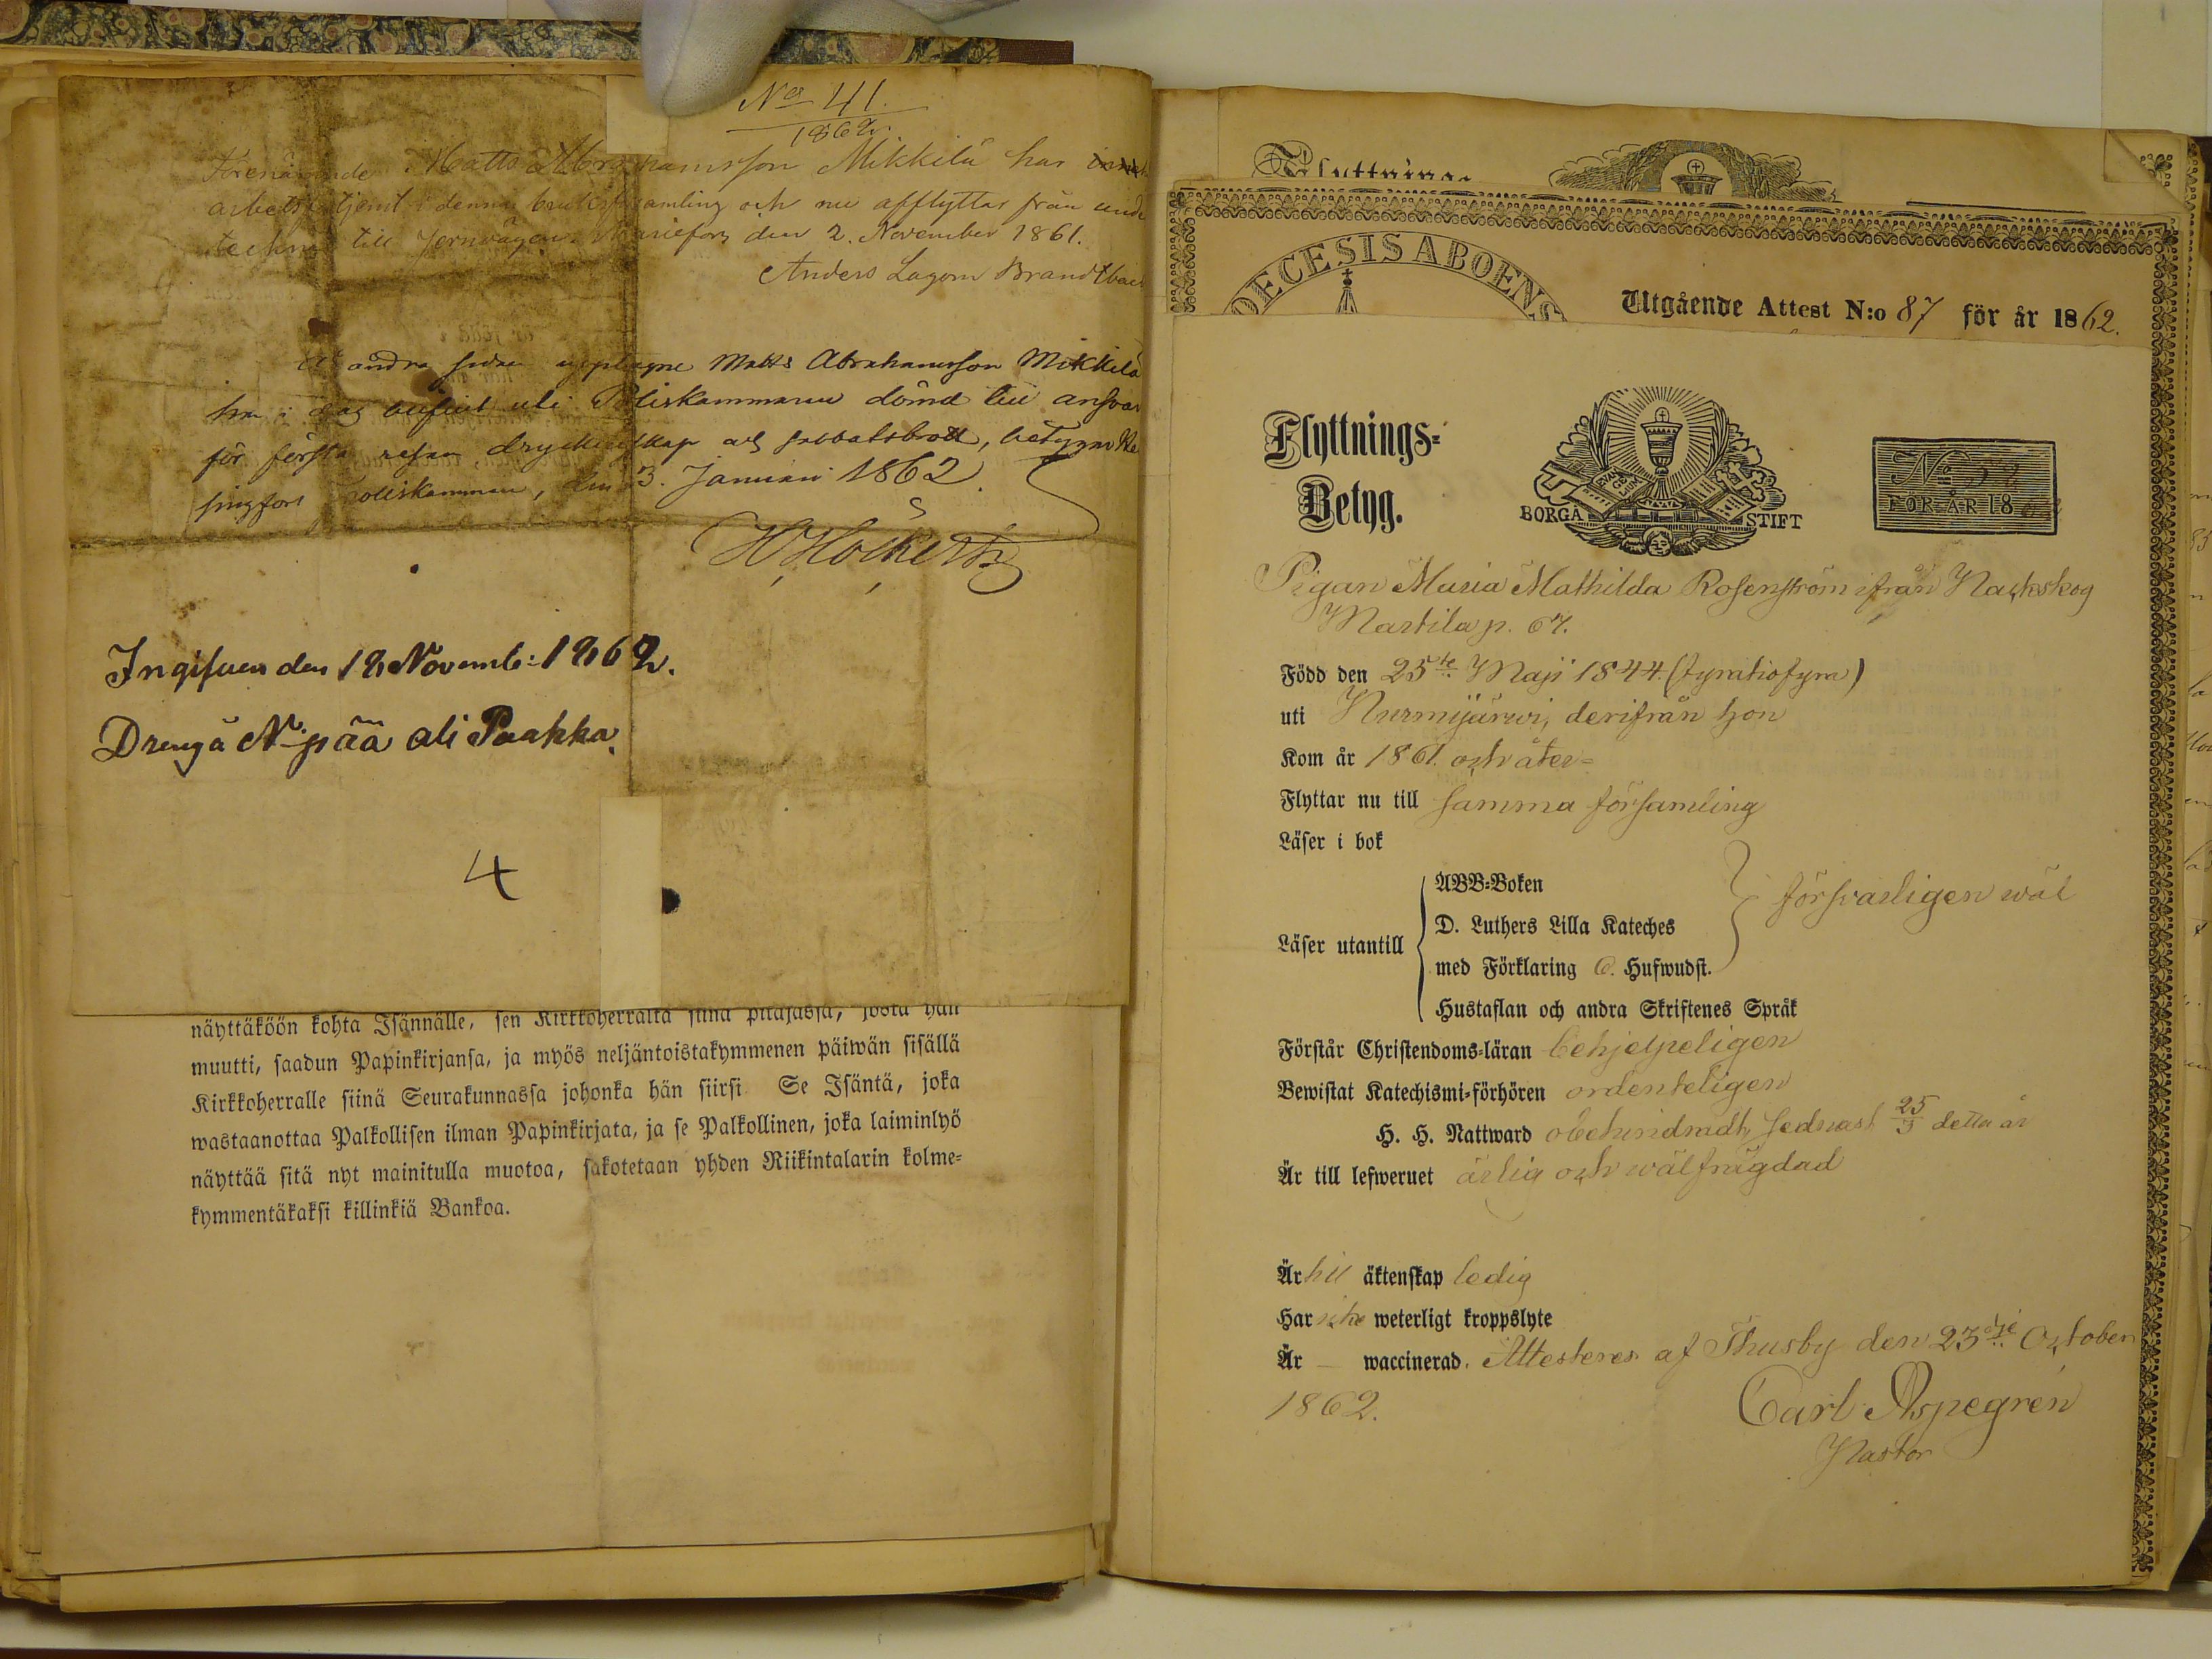 No 41.
1862.
Förenämnde Matts Abrahamsson Mikkilä har
arbetat tjent i denna bruksförsamling och nu afflyttar från
till Jernvägen. Mariefors den 2. November 1861.
Anders Lagom Brandtbäck
andra sidan Matts Abrahamsson Mikkilä
har i dag blifvit uti Poliskammaren dömd till ansvar
för första resan dryckenskap och sabbatsbrott, betygar He
singfors Poliskammare, den 3. Januari 1862.
Ingifven den 18 Novemb: 1862.
Dreng å N:pää ali Paakka.
4
näyttäköön kohta Isännälle, sen Kirkkoherralta siinä pitäjässä, josta hän
muutti, saadun Papinkirjansa, ja myös neljäntoistakymmenen päiwän sisällä
Kirkkoherralle siinä Seurakunnassa johonka hän siirsi Se Isäntä, joka
wastaanottaa Palkollisen ilman Papinkirjata, ja se Palkollinen, joka laiminlyö
näyttää sitä nyt mainitulla muotoa, sakotetaan yhden Riikintalarin kolme-
kymmentäkaksi killinkiä Bankoa.
Flyttnings
DECESIS ABOENS
Utgående Attest N:o 87 för år 1862.
Flyttnings-
Betyg.
EVAN
GE
LIUM
BORGÅ STIFT
No 58
FÖR ÅR 1862
Pigan Maria Mathilda Rosenström ifrån Nackskog
Martila p. 67.
Född den 25te Maji 1844. (fyratiofyra)
uti Nurmijärwi, derifrån hon
Kom år 1861. och åter-
Flyttar nu till samma församling
Läser i bok
ABB-Boken
försvarligen wäl
Läser utantill
D. Luthers Lilla Kateches
med Förklaring 6. Hufwudst.
Hustaflan och andra Skriftenes Språk
Förstår Christendoms-läran behjelpeligen
Bewistat Katechismi-förhören ordenteligen
H. H. Nattward obehindradt, sednast 25/5 detta år
Är till lefwernet ärlig och wälfrägdad
Är till äktenskap ledig
Har icke weterligt kroppslyte
Är — waccinerad. Attesteres af Thusby den 23dje October
1862.
Carl Aspegrén
Pastor